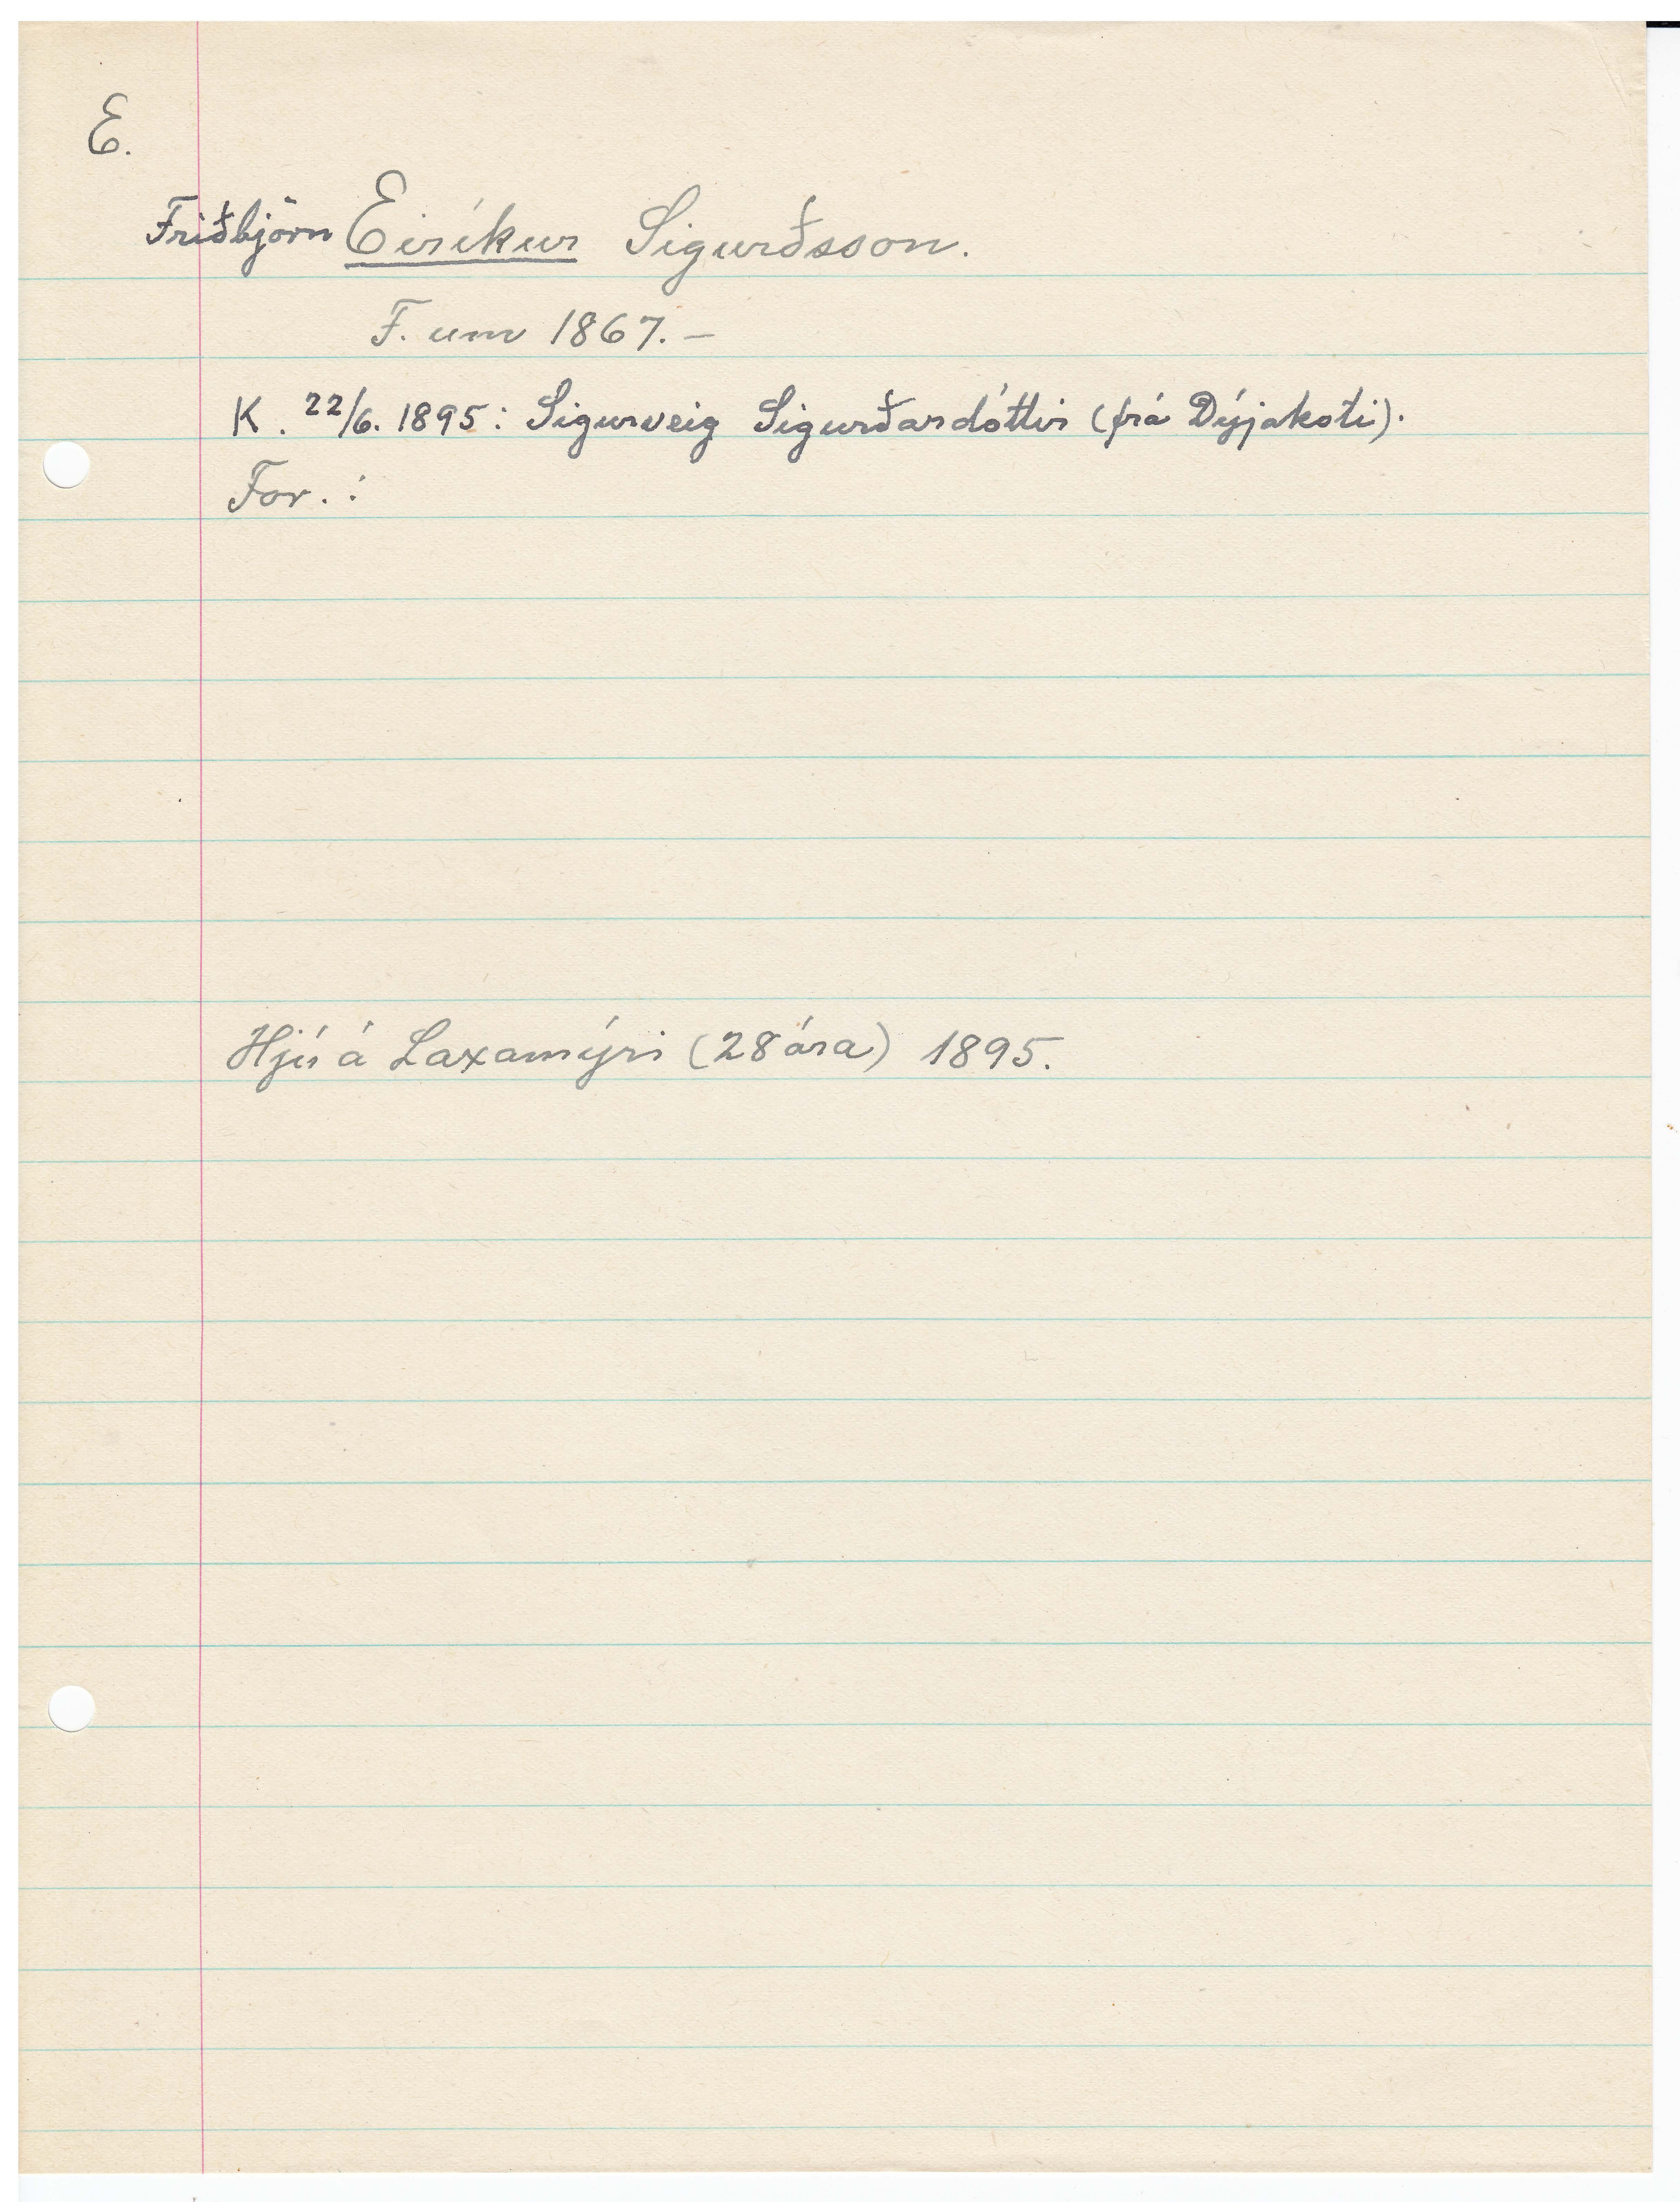 E.
Friðbjörn Eiríkur Sigurðsson.
F. um 1867. –
K. 22/6. 1895: Sigurveig Sigurðardóttir (frá Dýjakoti).
For. :
Hjú á Laxamýri (28 ára) 1895.